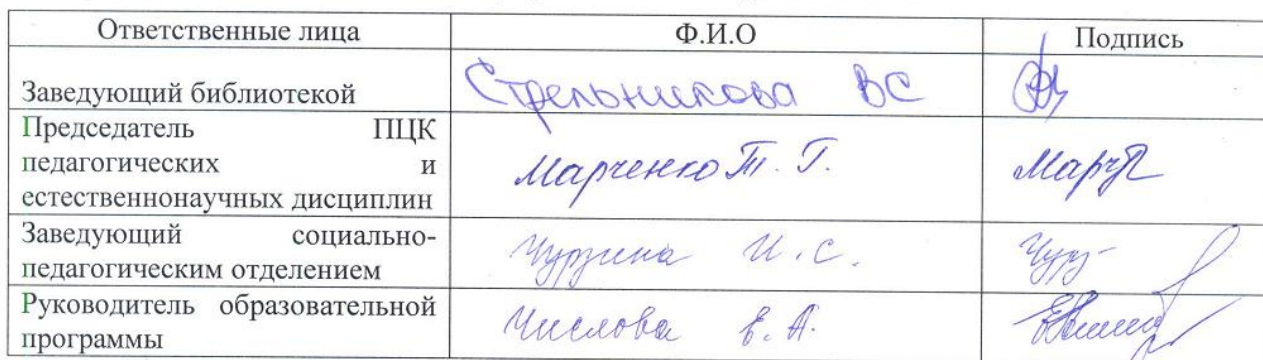 Ответственные лица Ф.И.О Подпись
Заведующий библиотекой Стрельникова ВС
Председатель ПЦК
педагогических и
естественнонаучных дисциплин Марченко Т. Г.
Заведующий социально-
педагогическим отделением Чурзина И. С.
Руководитель образовательной
программы Числова Е. А.